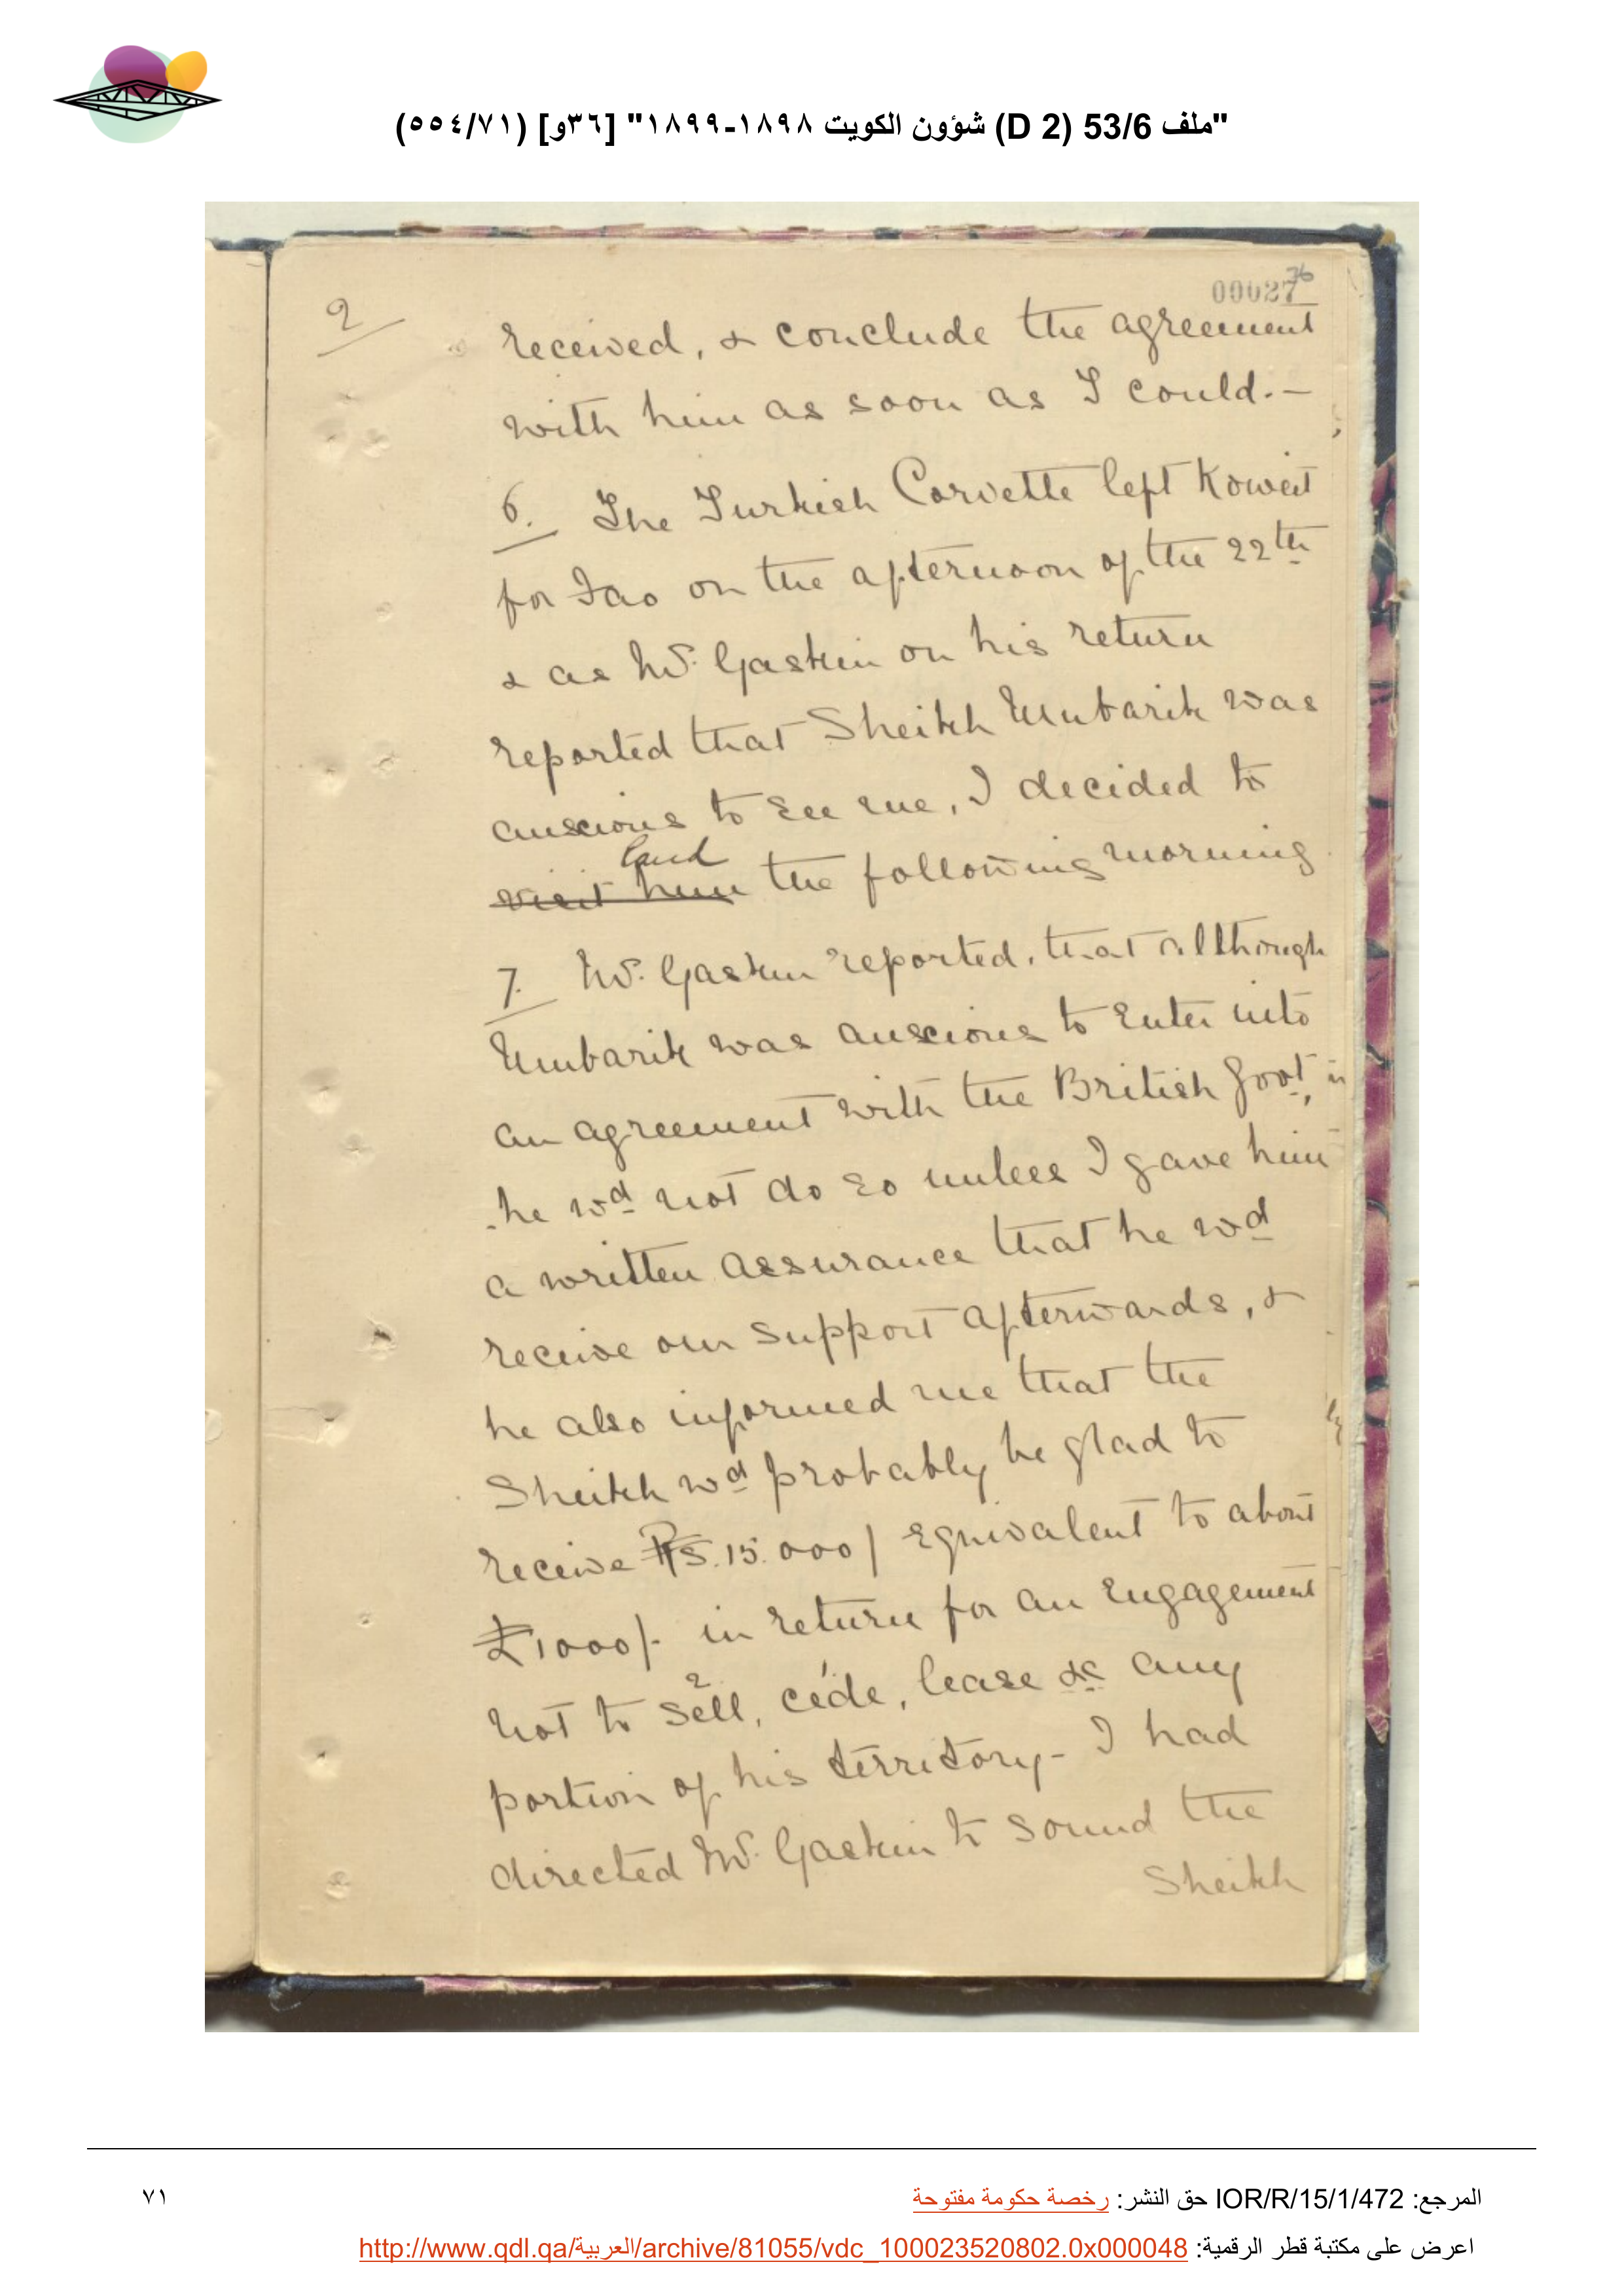 "ملف 53/6 (D 2) شؤون الكويت ١٨٩٨-١٨٩٩" [٣٦و] (٥٥٤/٧١)
36
00027
2
received, & conclude the agreement
with him as soon as I could.—
6. The Turkish Corvette left Koweit
for Fao on the afternoon of the 22th
& as Mr. Gaskin on his return
reported that Sheikh Mubarik was
anxious to see me, I decided to
land
visit him the following morning
7. Mr. Gaskin reported, that although
Mubarik was anxious to enter into
an agreement with the British Govt,
he wd not do so unless I gave him
a written assurance that he wd
receive our support afterwards, &
he also informed me that the
Sheikh wd probably be glad to
receive Rs. 15.000/ equivalent to about
£1000/- in return for an engagement
not to sell, cede, lease &c any
portion of his territory - I had
directed Mr. Gaskin to sound the
Sheikh
المرجع: IOR/R/15/1/472 حق النشر: رخصة حكومة مفتوحة
٧١
اعرض على مكتبة قطر الرقمية: http://www.qdl.qa/العربية/archive/81055/vdc_100023520802.0x000048